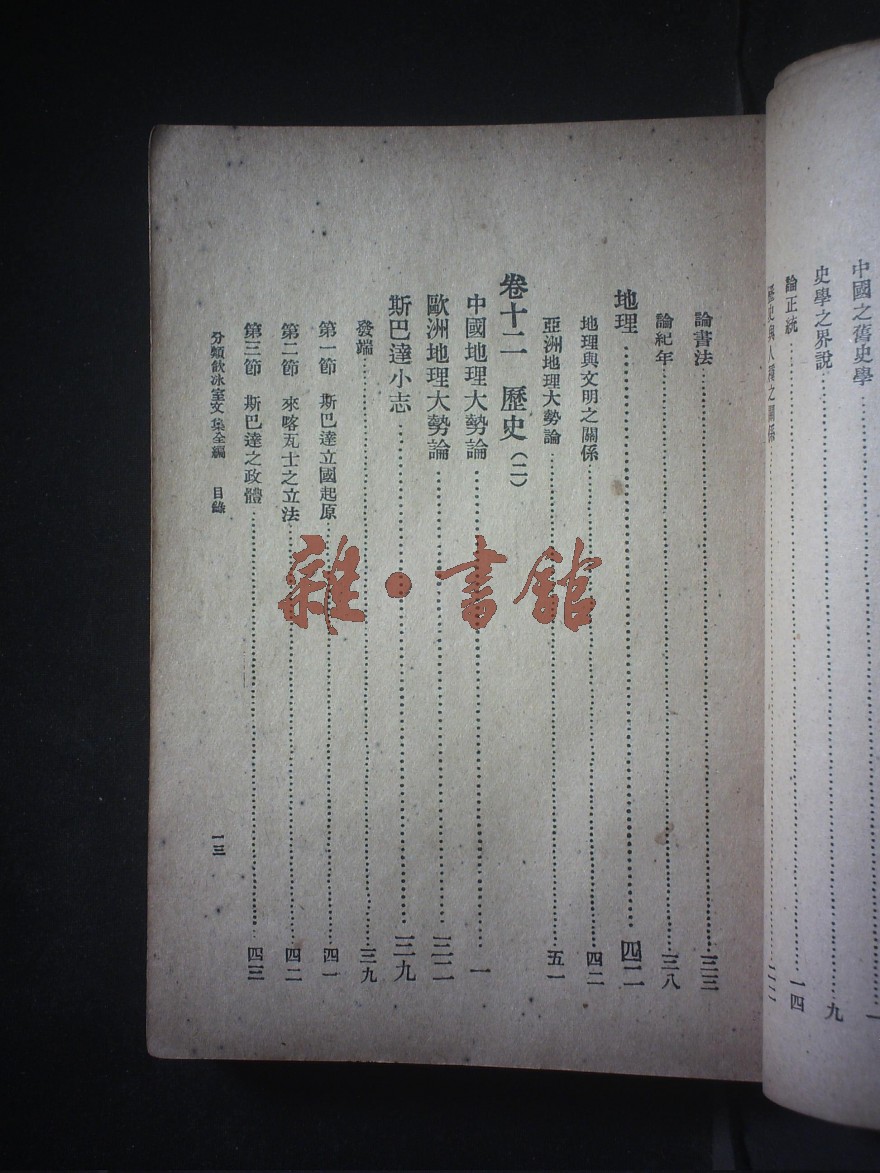 中國之舊史學……一
史學之界說……九
論正統……一四
歷史與人種之關係……
論書法……三三
論紀年……三八
地理……四二
地理與文明之關係……四二
亞洲地理大勢論……五一
卷十二 歷史(二)
中國地理大勢論……一
歐洲地理大勢論……三二
斯巴達小志……三九
發端……三九
第一節 斯巴達立國起原……四一
第二節 來喀瓦士之立法……四二
第三節 斯巴達之政體……四三
分類飲冰室文集全編 目錄 一三
雜·書館